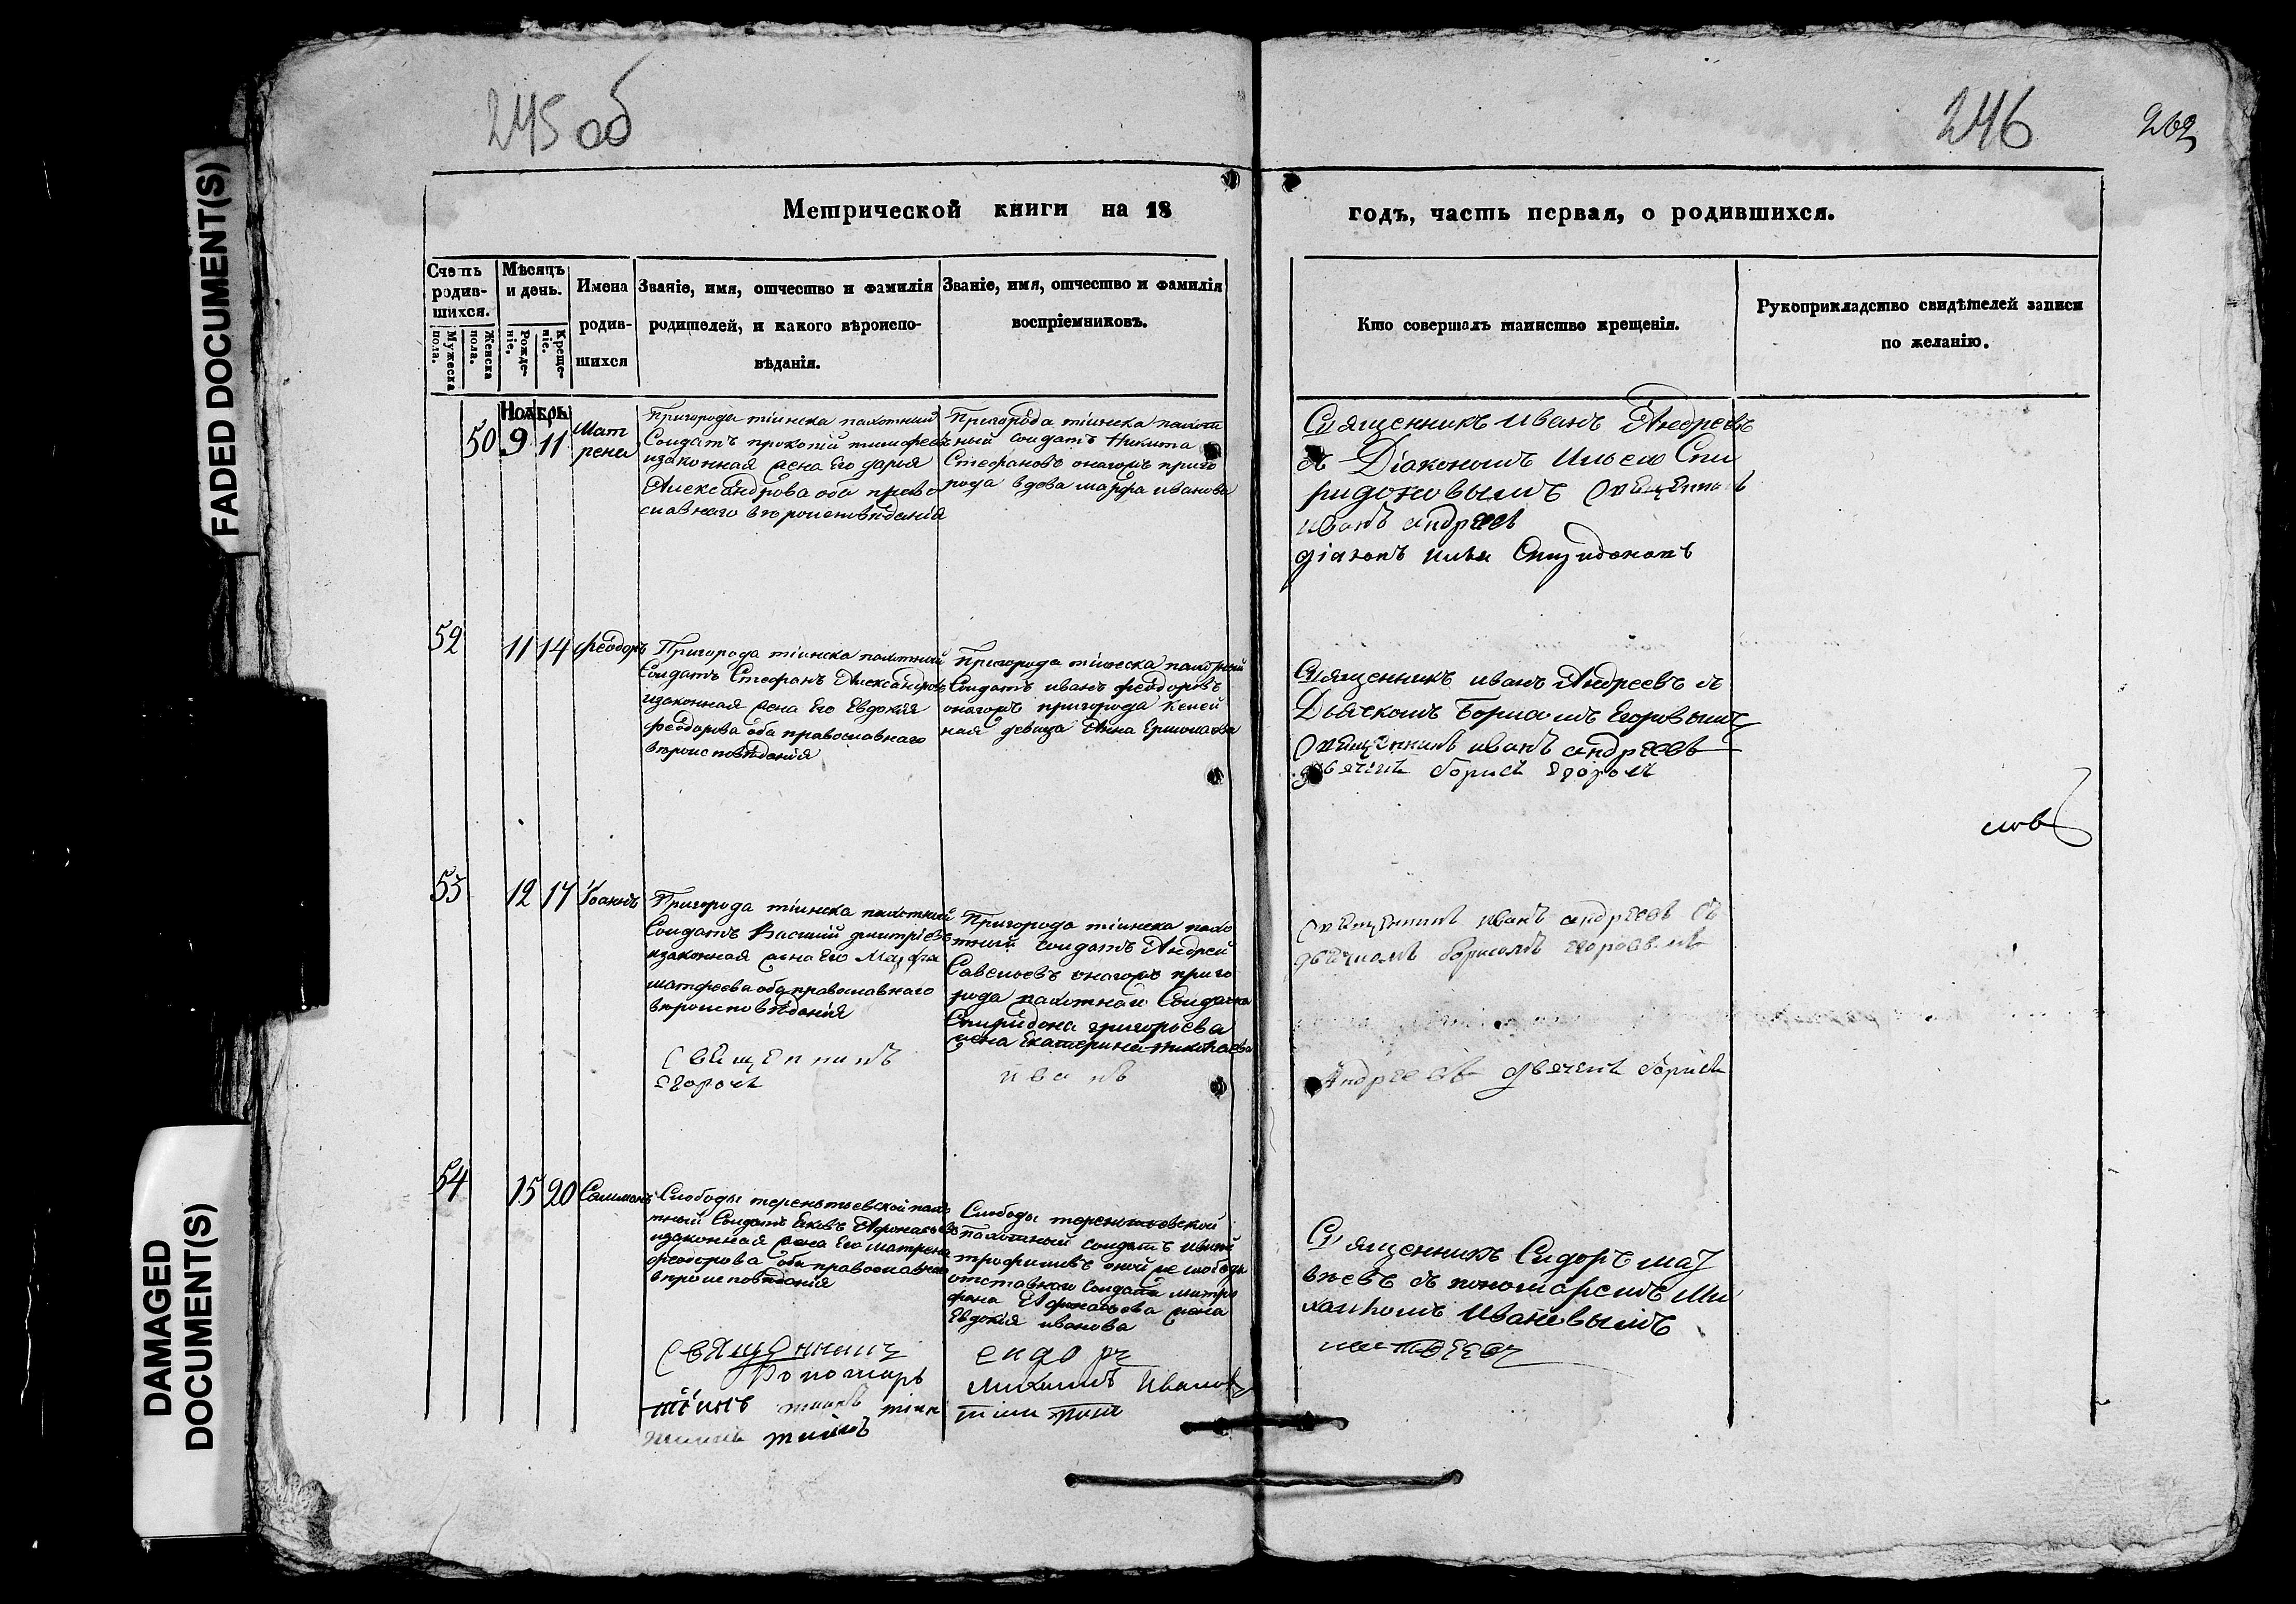 FADED DOCUMENT(S)
DAMAGED
DOCUMENT(S)
245 об
246
262
Метрической книги на 18
годъ, часть первая, о родившихся.
Счетъ
родив-
шихся.
Мужеска
пола.
Женска
пола.
Мѣсяцъ
и день.
Рожде-
ніе.
Креще-
ніе.
Имена
родив-
шихся
Званіе, имя, отчество и фамилія
родителей, и какого вѣроиспо-
вѣданія.
Званіе, имя, отчество и фамилія
воспріемниковъ.
Кто совершалъ таинство крещенія.
Рукоприкладство свидѣтелей записи
по желанію.
Ноябрь
50 9 11
Мат
рена
Пригорода тіинска пахотний
Солдатъ прокопій тимофеевъ
изаконная жена Его дарья
Александрова оба право
славнаго вѣроисповѣданія
Пригорода тіинска пахот
ный солдатъ Никита
Стефановъ онагожъ приго
рода вдова марфа иванова
Священникъ Иванъ Андреевъ
съ Діакономъ Ильею Спи
ридоновымъ Священникъ
иванъ андреевъ
діаконъ илья Спиридоновъ
52 11 14 феодоръ
Пригорода тіинска пахотний
Солдатъ Стефанъ Александровъ
изаконная жена Его Евдокия
феодорова оба православнаго
вѣроисповѣданія
Пригорода тіинска пахотный
Солдатъ иванъ феодоровъ
онагожъ пригорода
девица Анна
Священникъ иванъ Андреевъ съ
Дьячкомъ Борисомъ Егоровымъ
Священникъ иванъ андреевъ
дьячекъ борисъ Егоровъ
53 12 17 Іоаннъ
Пригорода тіинска пахотний
Солдатъ Василий дмитріевъ
изаконная жена Его Марфа
матфеева оба православнаго
вѣроисповѣданія
Пригорода тіинска пахо
тний солдатъ Андрей
Савельевъ онагожъ приго
рода пахотнаго Солдата
Спиридона григорьева
жена Екатерина николаева
Священникъ иванъ андреевъ съ
дьячкомъ борисомъ егоровымъ
Священникъ
иванъ
Андреевъ дьячекъ борисъ
Егоровъ
54 15 20 Саммонъ
Слободы терентьевской пахо
тный Солдатъ Яковъ Афонасьевъ
изаконная жена Его матрена
феодорова оба православнаго
вѣроисповѣданія
Слободы терентьевской
пахотный солдатъ
трофимовъ оной же слободы
отставнаго солдата митро
фана Афонасьева жена
Евдокія иванова
Священникъ Сидоръ мат
вѣевъ съ пономаремъ Ми
хаиломъ Ивановымъ
Священникъ
сидоръ
матвеевъ
Пономарь
михаилъ Ивановъ